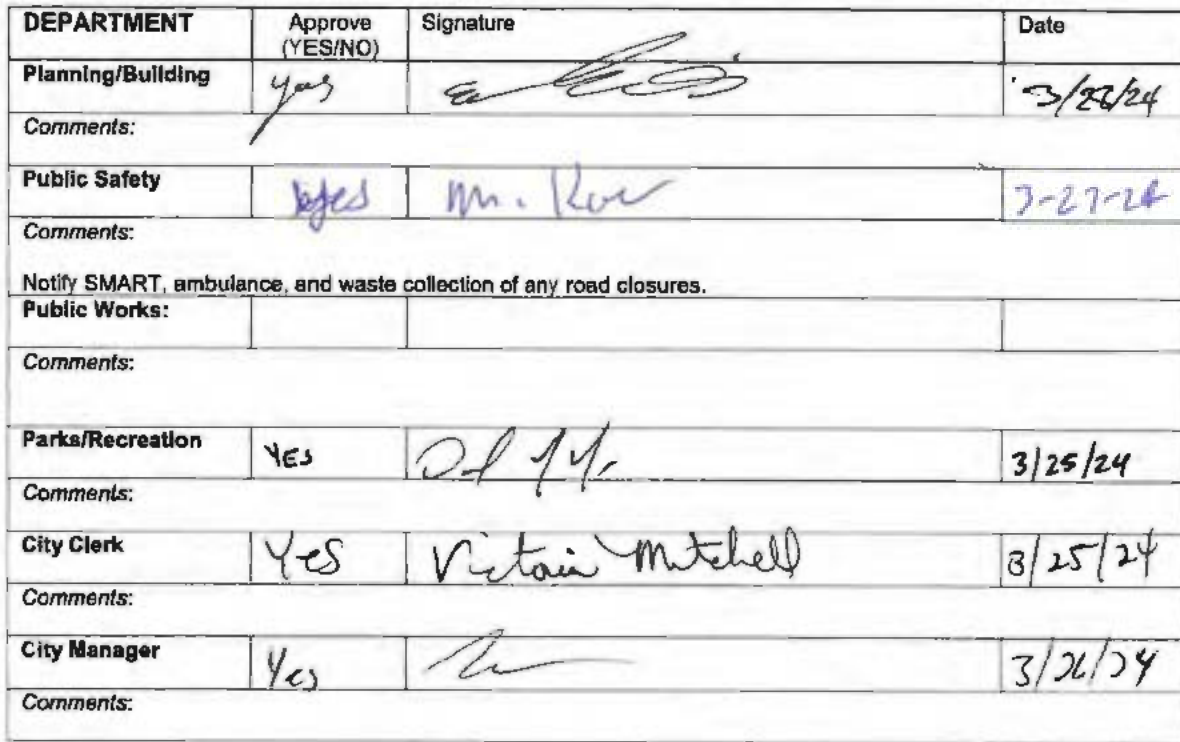 DEPARTMENT Approve (YES/NO) Signature Date
Planning/Building yes
Comments:
Public Safety yes M.
Comments:
Notify SMART, ambulance, and waste collection of any road closures.
Public Works:
Comments:
Parks/Recreation YES 3/25/24
Comments:
City Clerk Yes Victoria Mitchell 3/25/24
Comments:
City Manager Yes 3/26/24
Comments: